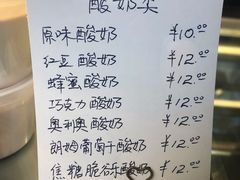 酸奶类
原味酸奶 ¥10.00
红豆酸奶 ¥12.00
蜂蜜酸奶 ¥12.00
巧克力酸奶 ¥12.00
奥利奥酸奶 ¥12.00
朗姆葡萄干酸奶 ¥12.00
焦糖脆谷乐酸奶 ¥12.00